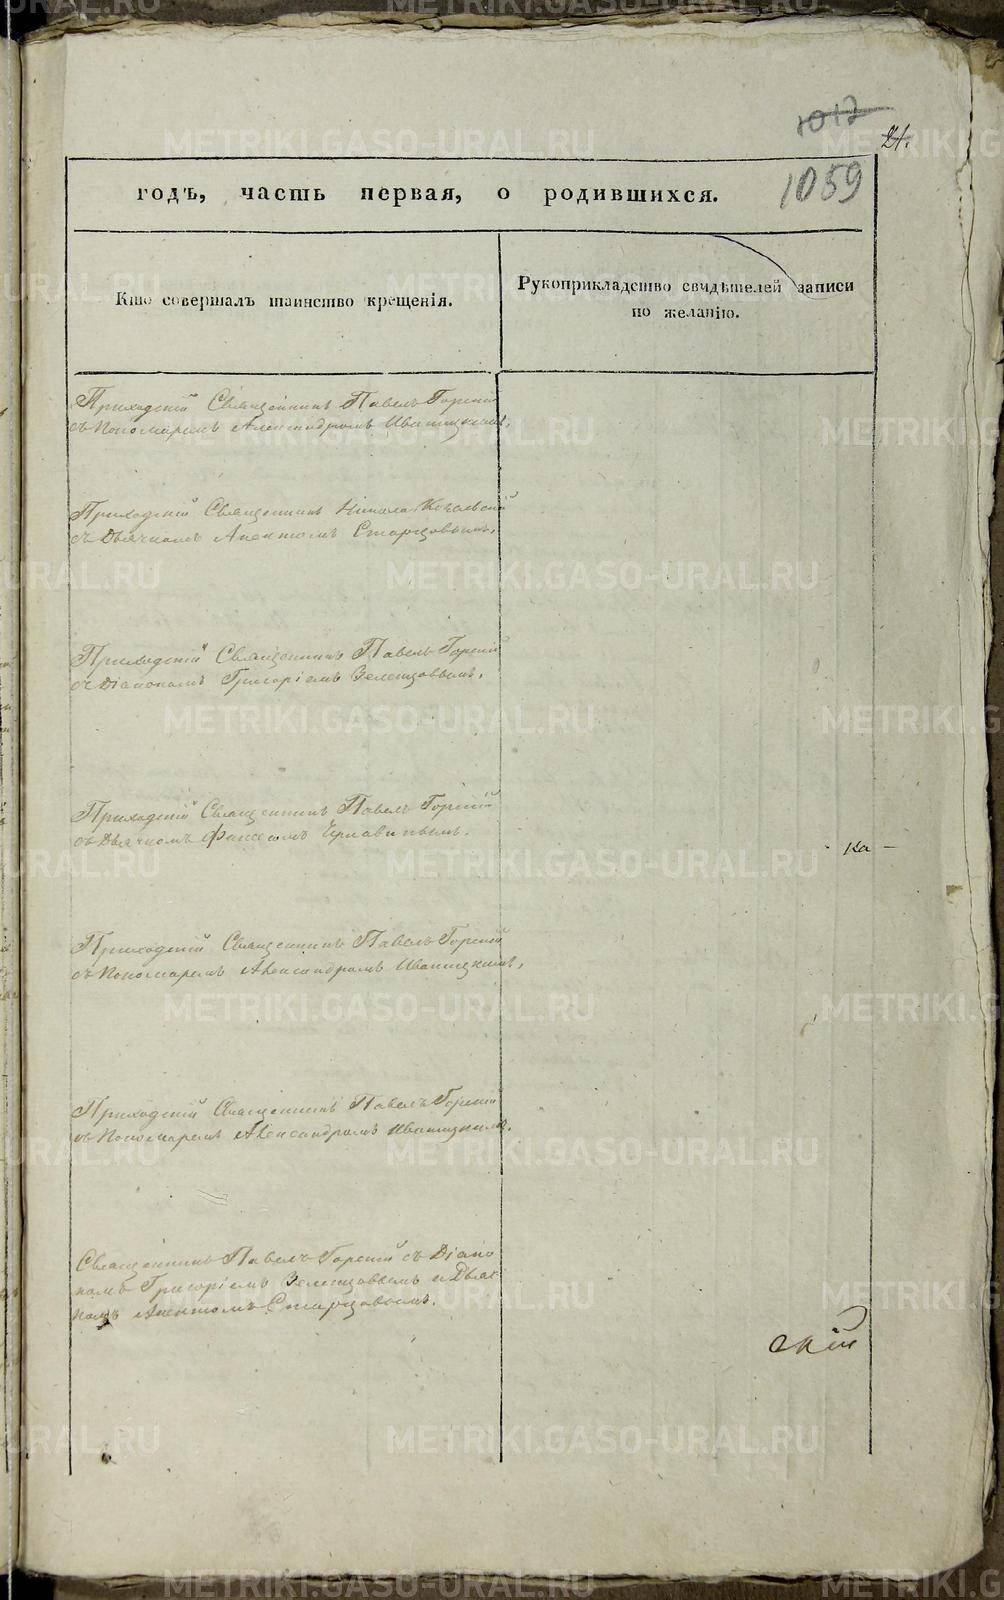 1012
21.
годъ, часть первая, о родившихся.
1059
Кто совершалъ таинство крещенія.
Рукоприкладство свидѣтелей записи
по желанію.
Приходскій Священникъ Павелъ Горскій
съ Пономаремъ Александромъ Иваницкимъ.
Приходскій Священникъ Никола
съ Дьячкомъ Старцовымъ.
Приходскій Священникъ Павелъ Горскій
съ Діакономъ Григоріемъ Зеленцовымъ.
Приходскій Священникъ Павелъ Горскій
съ Дьячкомъ Чернавинымъ.
ка
Приходскій Священникъ Павелъ Горскій
съ Пономаремъ Александромъ Иваницкимъ.
Приходскій Священникъ Павелъ Горскій
съ Пономаремъ Александромъ Иваницкимъ.
Священникъ Павелъ Горскій съ Діако
номъ Григоріемъ Зеленцовымъ и Дьяч
комъ Старцовымъ.
скій
METRIKI.GASO-URAL.RU